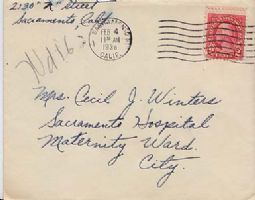 2130 "K" Street
Sacramento, Calif.
Wd 16
FEB 4
AM
1936
CALIF.
Mrs. Cecil J. Winters
Sacramento Hospital
Maternity Ward.
City.